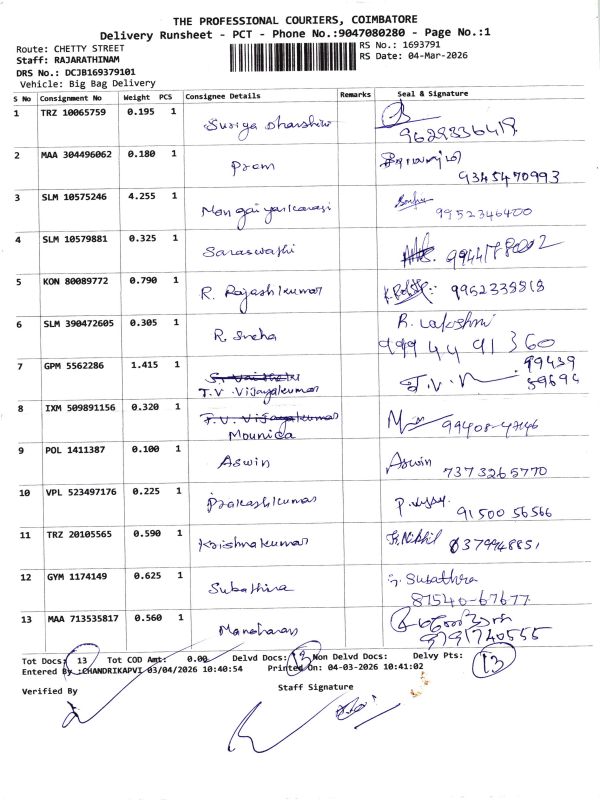 THE PROFESSIONAL COURIERS, COIMBATORE
Delivery Runsheet - PCT - Phone No.:9047080280 - Page No.:1
Route: CHETTY STREET
RS No.: 1693791
Staff: RAJARATHINAM
RS Date: 04-Mar-2026
DRS No.: DCJB169379101
Vehicle: Big Bag Delivery
S No Consignment No Weight PCS Consignee Details Remarks Seal & Signature
1 TRZ 10065759 0.195 1 Suriya dharshini
9629336419
2 MAA 304496062 0.180 1 Prem
9345470993
3 SLM 10575246 4.255 1 Mangaiyarkarasi 9952346400
4 SLM 10579881 0.325 1 Saraswathi
5 KON 80089772 0.790 1 R. Rajashkumar 9952338818
6 SLM 390472605 0.305 1 R. Sneha R. Lakshmi
99944 91360
7 GPM 5562286 1.415 1 T.V Vijayakumar T.V.
99439
59694
8 IXM 509891156 0.320 1 T.V. Vijayakumar
Mounica 99408-47146
9 POL 1411387 0.100 1 Aswin Aswin
7373265770
10 VPL 523497176 0.225 1 Prakashkumar
91500 56566
11 TRZ 20105565 0.590 1 Krishnakumar Nikhil
12 GYM 1174149 0.625 1 Subathira S. Subathra
87540-67677
13 MAA 713535817 0.560 1 Manoharan
9791740555
Tot Docs: 13 Tot COD Amt: 0.00 Delvd Docs: 13 Non Delvd Docs: Delvy Pts: 13
Entered By :CHANDRIKAPVI 03/04/2026 10:40:54 Printed On: 04-03-2026 10:41:02
Verified By Staff Signature